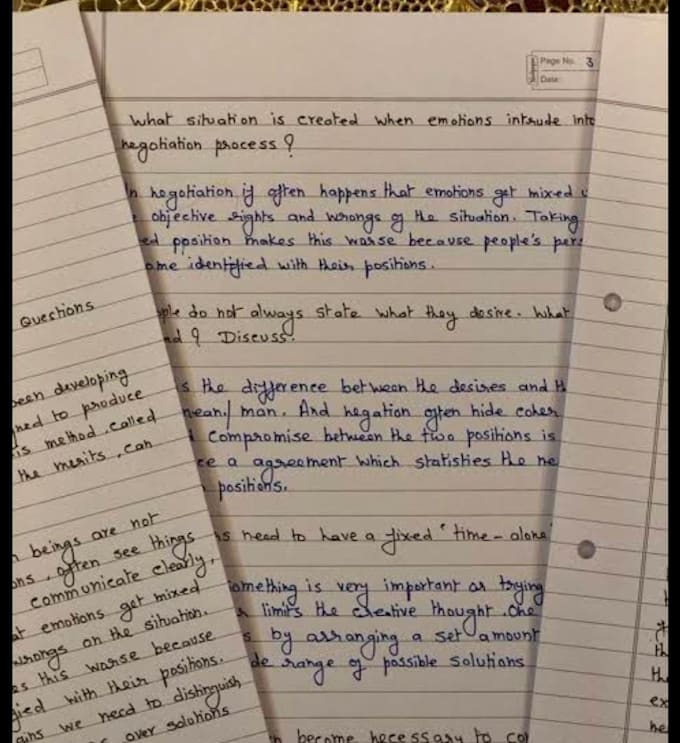 Page No. 3
Date:
What situation is created when emotions intrude into
negotiation process?
In negotiation if often happens that emotions get mixed
objective rights and wrongs of the situation. Taking
position makes this worse because people's
identified with their positions.
do not always state what they desire. What
? Discuss.
the difference between the desires and
mean/ man. And negation often hide
compromise between the two positions is
a agreement which statisties the
positions.
need to have a fixed "time - alone
something is very important as trying
limits the creative thought. One
by arranging a set amount
range of possible solutions
become necessary to
Questions
been developing
to produce
method called
the merits, can
beings are not
often see things
communicate clearly,
emotions get mixed
wrongs on the situation.
this worse because
with their positions.
we need to distinguish
over solutions